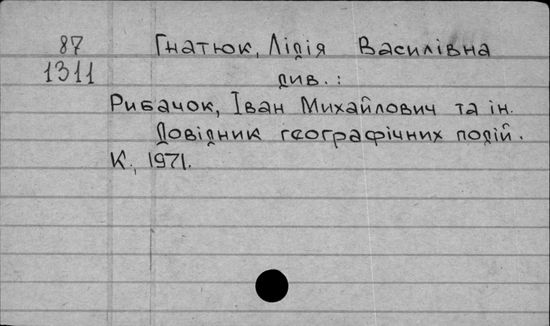 87 Гнатюк, Лідія Василівна
1311 див.:
Рибачок, Іван Михайлович та ін.
Довідник географічних подій.
К., 1971.